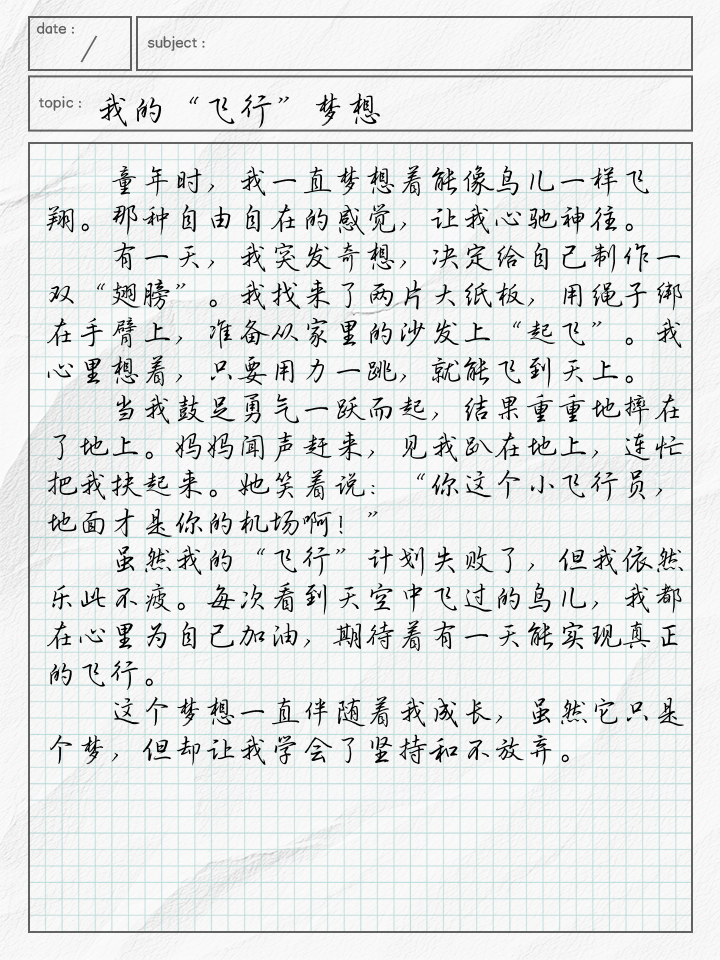 date :
/
subject :
topic : 我的“飞行”梦想
童年时，我一直梦想着能像鸟儿一样飞
翔。那种自由自在的感觉，让我心驰神往。
有一天，我突发奇想，决定给自己制作一
双“翅膀”。我找来了两片大纸板，用绳子绑
在手臂上，准备从家里的沙发上“起飞”。我
心里想着，只要用力一跳，就能飞到天上。
当我鼓足勇气一跃而起，结果重重地摔在
了地上。妈妈闻声赶来，见我趴在地上，连忙
把我扶起来。她笑着说：“你这个小飞行员，
地面才是你的机场啊！”
虽然我的“飞行”计划失败了，但我依然
乐此不疲。每次看到天空中飞过的鸟儿，我都
在心里为自己加油，期待着有一天能实现真正
的飞行。
这个梦想一直伴随着我成长，虽然它只是
个梦，但却让我学会了坚持和不放弃。